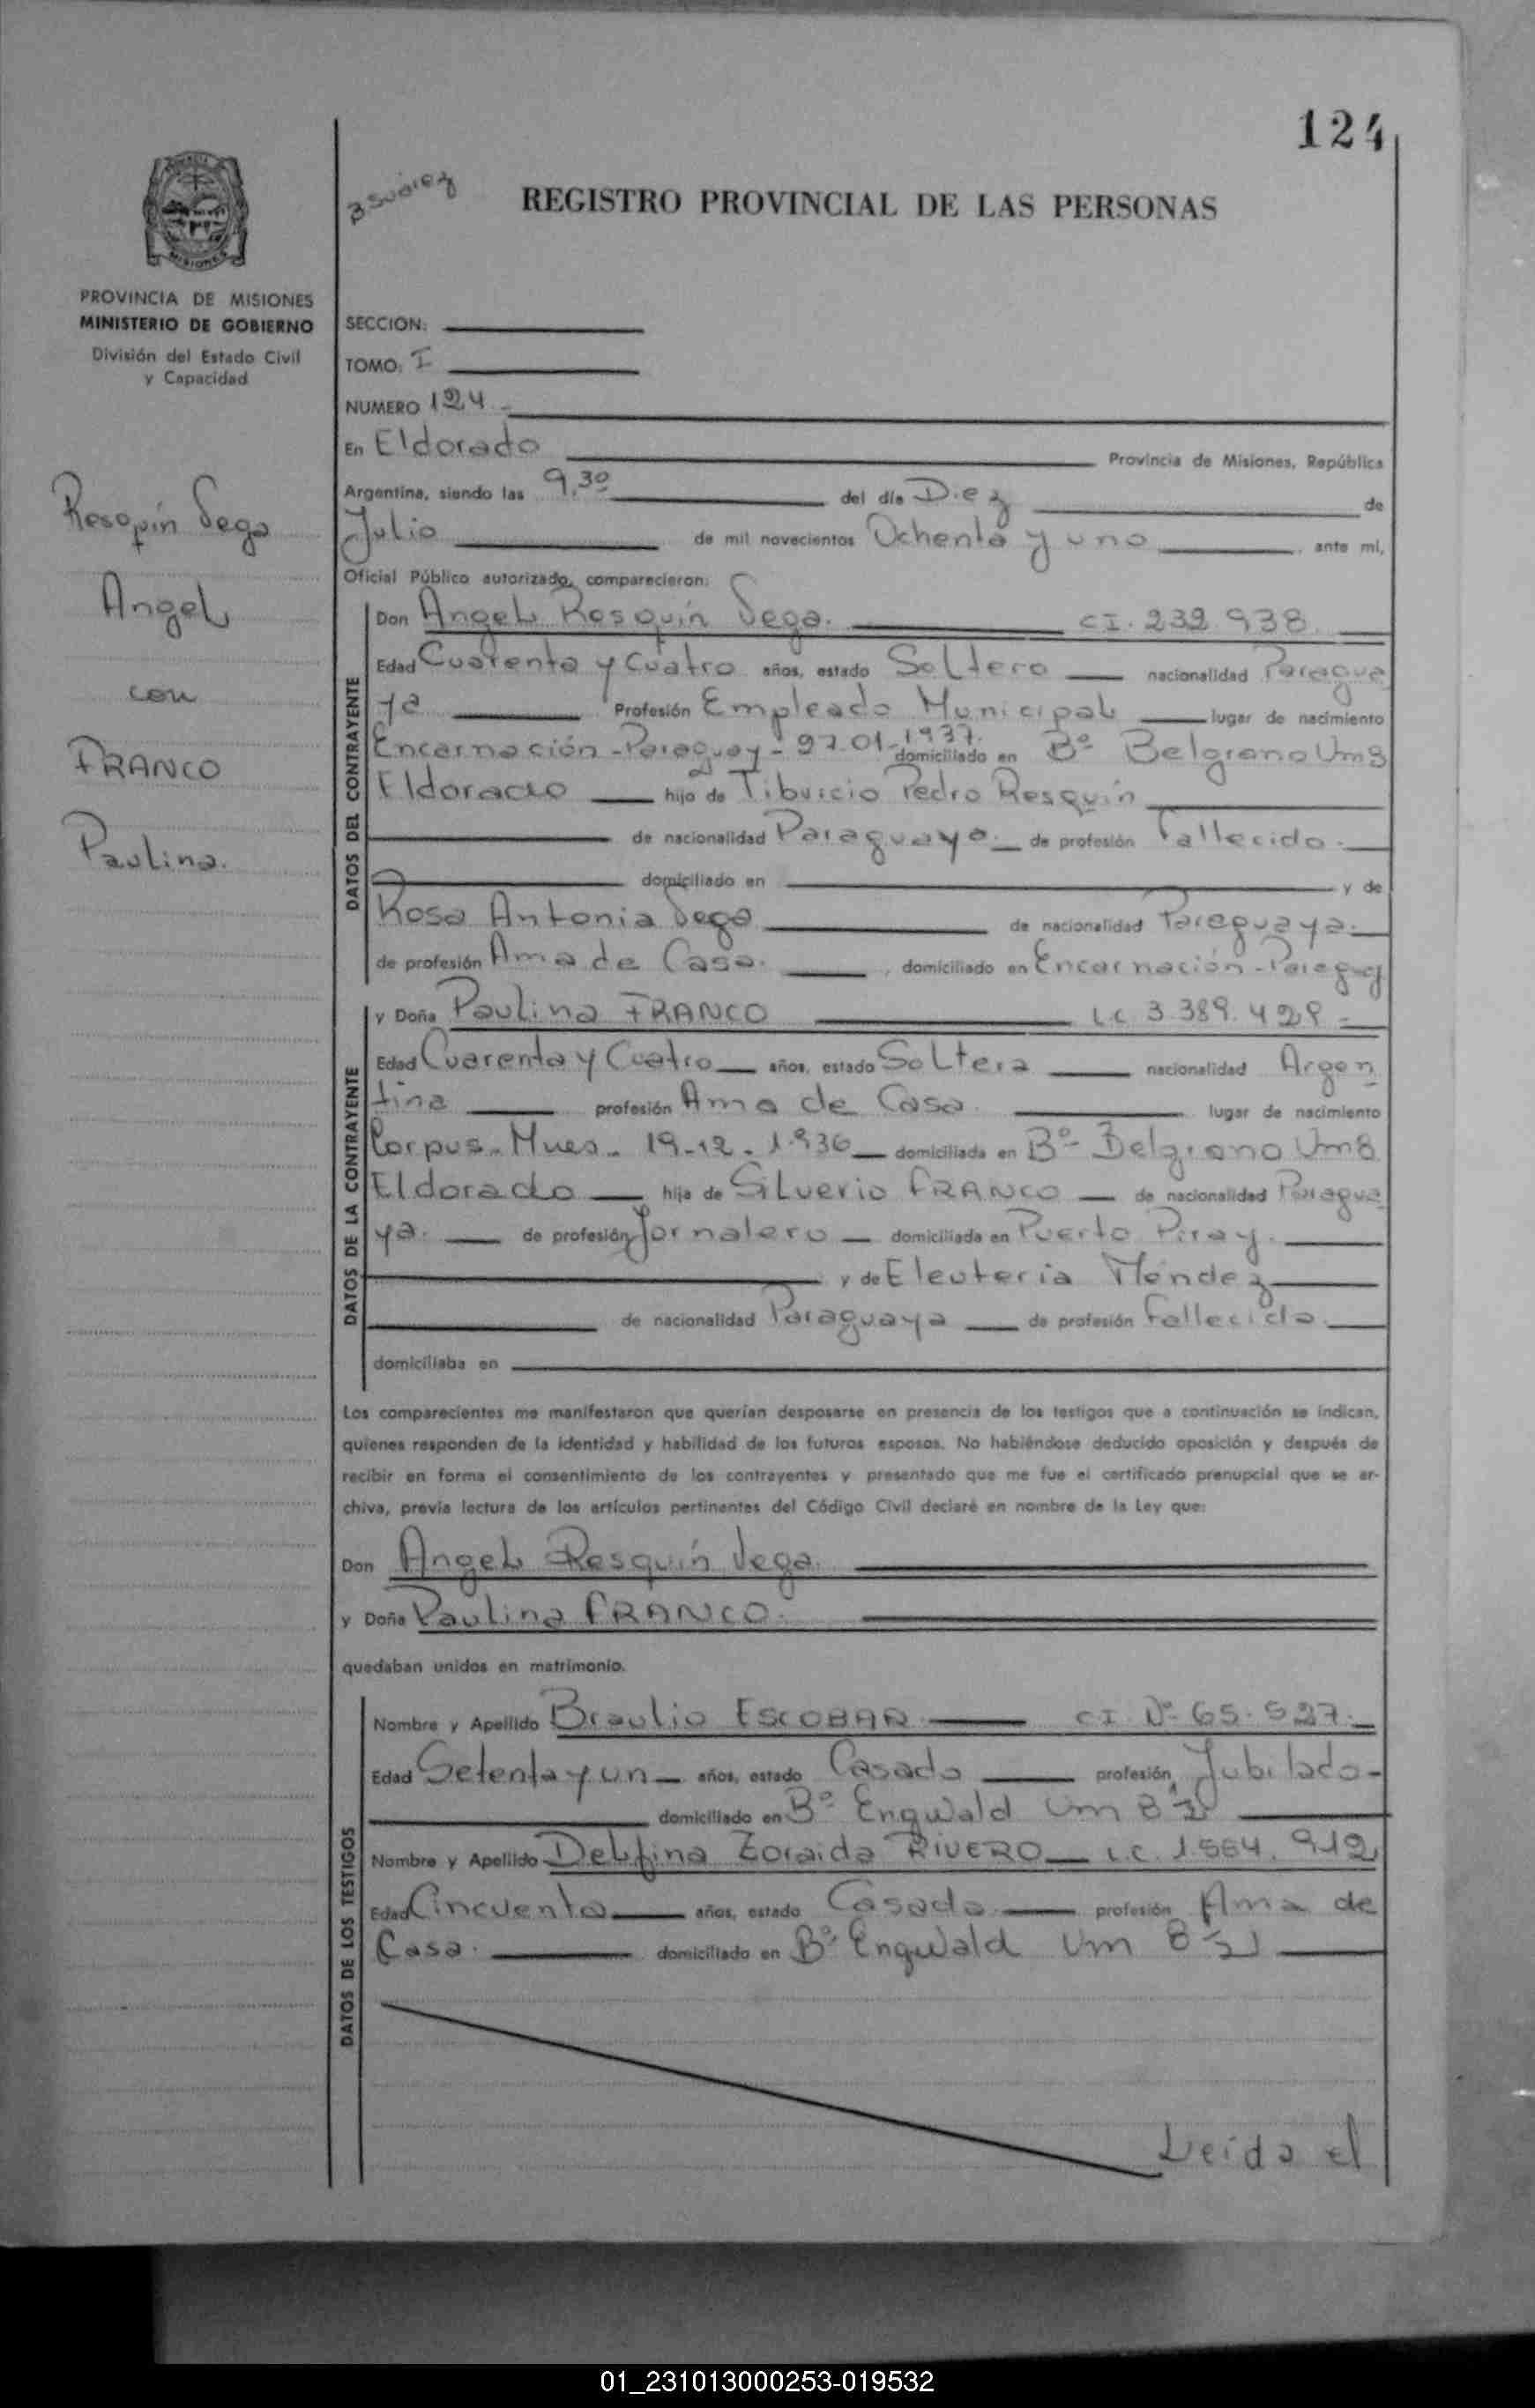 124
3 Suárez
REGISTRO PROVINCIAL DE LAS PERSONAS
MISIONES
PROVINCIA DE MISIONES
MINISTERIO DE GOBIERNO
División del Estado Civil
y Capacidad
Resquín Vega
Angel
con
FRANCO
Paulina.
SECCION:
TOMO: I
NUMERO 124.-
En Eldorado Provincia de Misiones, República
Argentina, siendo las 9,30 del día Diez de
Julio de mil novecientos Ochenta y uno, ante mí,
Oficial Público autorizado, comparecieron:
DATOS DEL CONTRAYENTE
Don Angel Resquín Vega. CI. 232.938.
Edad Cuarenta y Cuatro años, estado Soltero nacionalidad Paragua
ya Profesión Empleado Municipal lugar de nacimiento
Encarnación - Paraguay - 27.01-1937. domiciliado en Bº Belgrano Um8
Eldorado hijo de Tiburcio Pedro Resquín
de nacionalidad Paraguaya. de profesión Fallecido.
domiciliado en y de
Rosa Antonia Vega de nacionalidad Paraguaya.
de profesión Ama de Casa. , domiciliado en Encarnación - Paraguay
DATOS DE LA CONTRAYENTE
y Doña Paulina FRANCO L.C. 3.389.429 -
Edad Cuarenta y Cuatro años, estado Soltera nacionalidad Argen
tina profesión Ama de Casa. lugar de nacimiento
Corpus - Mnes - 19-12-1.936 domiciliada en Bº Belgrano Um8
Eldorado hija de Silverio FRANCO de nacionalidad Paragua
ya. de profesión Jornalero domiciliada en Puerto Piray.
y de Eleuteria Méndez
de nacionalidad Paraguaya de profesión Fallecida.
domiciliaba en
Los comparecientes me manifestaron que querían desposarse en presencia de los testigos que a continuación se indican,
quienes responden de la identidad y habilidad de los futuros esposos. No habiéndose deducido oposición y después de
recibir en forma el consentimiento de los contrayentes y presentado que me fue el certificado prenupcial que se ar-
chiva, previa lectura de los artículos pertinentes del Código Civil declaré en nombre de la Ley que:
Don Angel Resquín Vega.
y Doña Paulina FRANCO.
quedaban unidos en matrimonio.
DATOS DE LOS TESTIGOS
Nombre y Apellido Braulio ESCOBAR CI. Nº 65.527.
Edad Setenta y un años, estado Casado profesión Jubilado-
domiciliado en Bº Engwald Um 8 ½
Nombre y Apellido Delfina Zoraida RIVERO L.C. 1.564.912
Edad Cincuenta años, estado Casada profesión Ama de
Casa. domiciliado en Bº Engwald Um 8 ½
Leída el
01_231013000253-019532